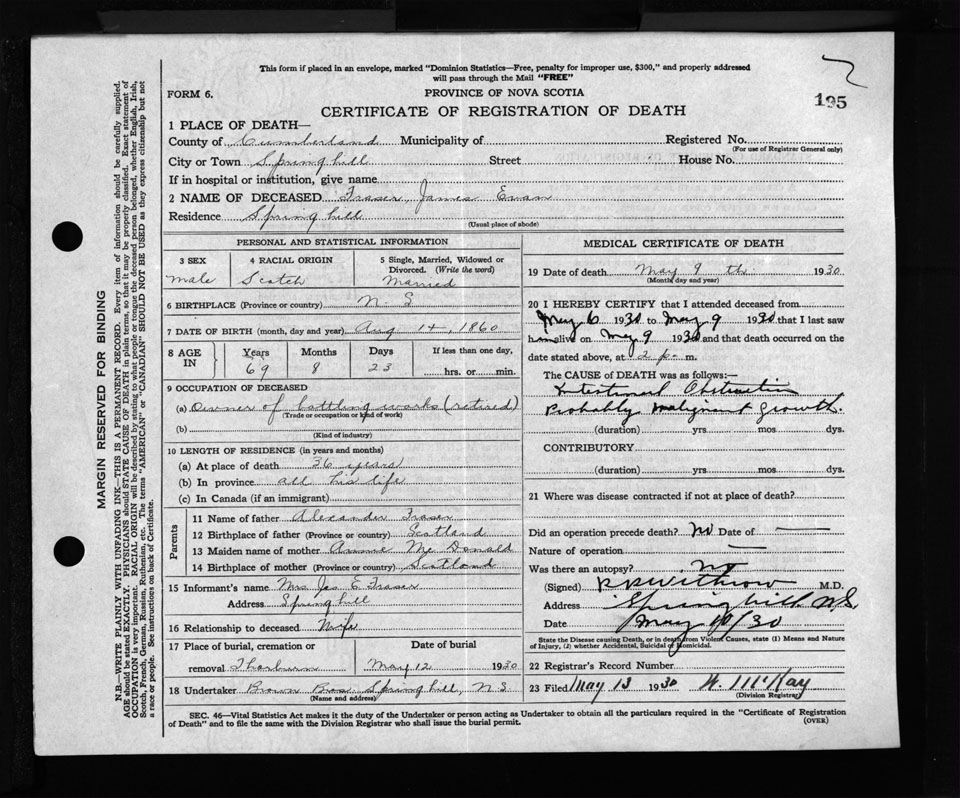 This form if placed in an envelope, marked "Dominion Statistics—Free, penalty for improper use, $300," and properly addressed
will pass through the Mail "FREE"
195
FORM 6.
PROVINCE OF NOVA SCOTIA
CERTIFICATE OF REGISTRATION OF DEATH
1 PLACE OF DEATH—
County of Cumberland Municipality of Registered No.
(For use of Registrar General only)
City or Town Springhill Street House No.
If in hospital or institution, give name
2 NAME OF DECEASED Fraser, James Evan
Residence Springhill
(Usual place of abode)
PERSONAL AND STATISTICAL INFORMATION
3 SEX 4 RACIAL ORIGIN 5 Single, Married, Widowed or
Divorced. (Write the word)
Male Scotch Married
6 BIRTHPLACE (Province or country) N. S
7 DATE OF BIRTH (month, day and year) Aug 14, 1860
8 AGE IN Years Months Days If less than one day,
69 8 23 hrs. or min.
9 OCCUPATION OF DECEASED
(a) Owner of bottling works (retired)
(Trade or occupation or kind of work)
(b)
(Kind of industry)
10 LENGTH OF RESIDENCE (in years and months)
(a) At place of death 36 years
(b) In province all his life
(c) In Canada (if an immigrant)
Parents
11 Name of father Alexander Fraser
12 Birthplace of father (Province or country) Scotland
13 Maiden name of mother Annie Mc Donald
14 Birthplace of mother (Province or country) Scotland
15 Informant's name Mrs Jas E Fraser
Address Springhill
16 Relationship to deceased Wife
17 Place of burial, cremation or Date of burial
removal Thorburn May 12 1930
18 Undertaker Brown Bros Springhill, N S
(Name and address)
MEDICAL CERTIFICATE OF DEATH
19 Date of death May 9 th 1930
(Month, day and year)
20 I HEREBY CERTIFY that I attended deceased from
May 6 1930 to May 9 1930 that I last saw
him alive on May 9 1930 and that death occurred on the
date stated above, at 2 p. m.
The CAUSE OF DEATH was as follows:—
Intestinal Obstruction
Probably Malignant growth.
(duration) yrs. mos. dys.
CONTRIBUTORY
(duration) yrs. mos. dys.
21 Where was disease contracted if not at place of death?
Did an operation precede death? No Date of
Nature of operation
Was there an autopsy? No
(Signed) R R Withrow M.D.
Address Springhill N.S.
Date May 10/30
State the Disease causing Death, or in death from Violent Causes, state (1) Means and Nature
of Injury, (2) whether Accidental, Suicidal or Homicidal.
22 Registrar's Record Number
23 Filed May 13 1930 W. McKay
(Division Registrar)
SEC. 46—Vital Statistics Act makes it the duty of the Undertaker or person acting as Undertaker to obtain all the particulars required in the "Certificate of Registration
of Death" and to file the same with the Division Registrar who shall issue the burial permit.
(OVER)
MARGIN RESERVED FOR BINDING
N.B.—WRITE PLAINLY WITH UNFADING INK—THIS IS A PERMANENT RECORD. Every item of information should be carefully supplied.
AGE should be stated EXACTLY. PHYSICIANS should STATE CAUSE OF DEATH in plain terms, so that it may be properly classified. Exact statement of
OCCUPATION is very important. RACIAL ORIGIN will be described by stating to what people or tongue the deceased person belonged, whether English, Irish,
Scotch, French, German, Russian, Ruthenian, etc. The terms "AMERICAN" or "CANADIAN" SHOULD NOT BE USED as they express citizenship but not
a race or people. See instructions on back of Certificate.